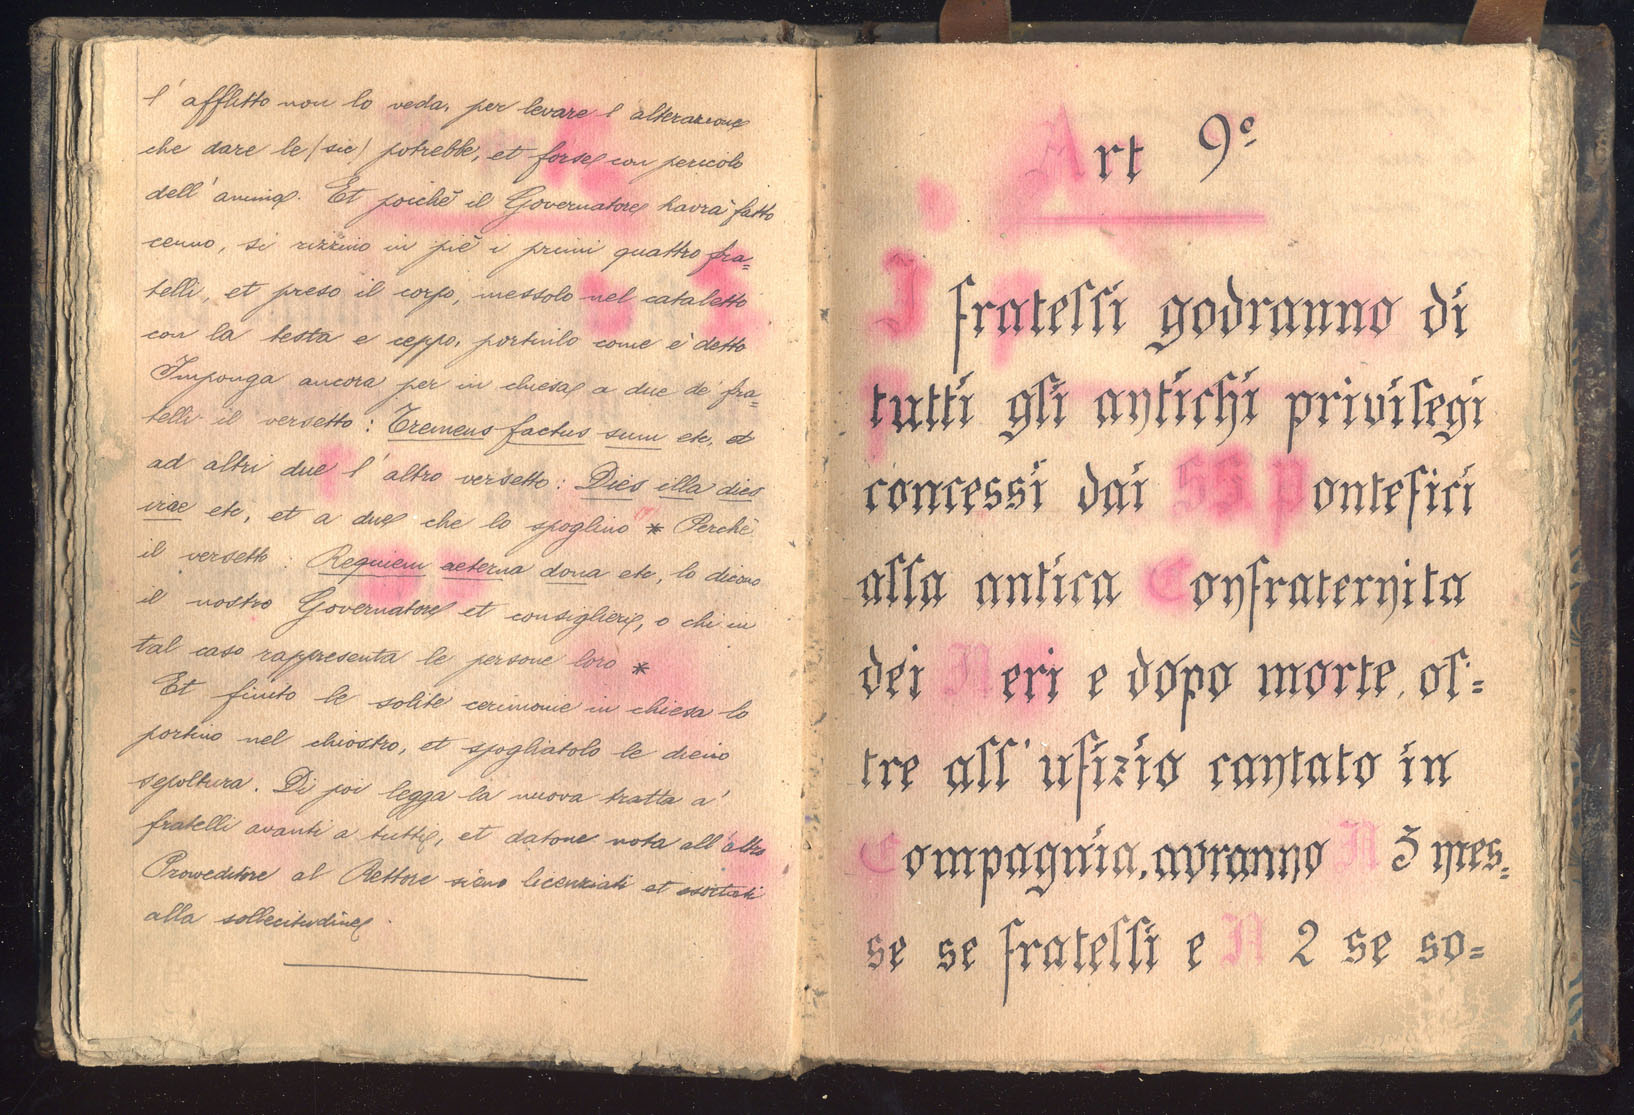 l'afflitto non lo veda, per levare l alterazione
che dare le (sic) potrebbe, et forse con pericolo
dell'anima. Et poichè il Governatore havrà fatto
cenno, si rizzino in piè i primi quattro fra=
telli, et preso il corpo, messolo nel cataletto
con la testa e ceppo, portinlo come è detto
Imponga ancora per in chiesa a due de' fra=
telli il versetto: Tremens factus sum etc, et
ad altri due l'altro versetto: Dies illa dies
irae etc, et a due che lo spoglino * Perchè
il versetto: Requiem aeterna dona etc, lo dicono
il nostro Governatore et consiglieri, o chi in
tal caso rappresenta le persone loro *
Et finito le solite cerimonie in chiesa lo
portino nel chiostro, et spogliatolo le dieno
sepoltura. Di poi legga la nuova tratta a'
fratelli avanti a tutti, et datone nota all'altro
Proveditore al Rettore sieno licenziati et esortati
alla sollecitudine.
Art 9º
I fratelli godranno di
tutti gli antichi privilegi
concessi dai SS Pontefici
alla antica Confraternita
dei Neri e dopo morte, ol=
tre all'ufizio cantato in
Compagnia, avranno N 3 mes=
se se fratelli e N 2 se so=